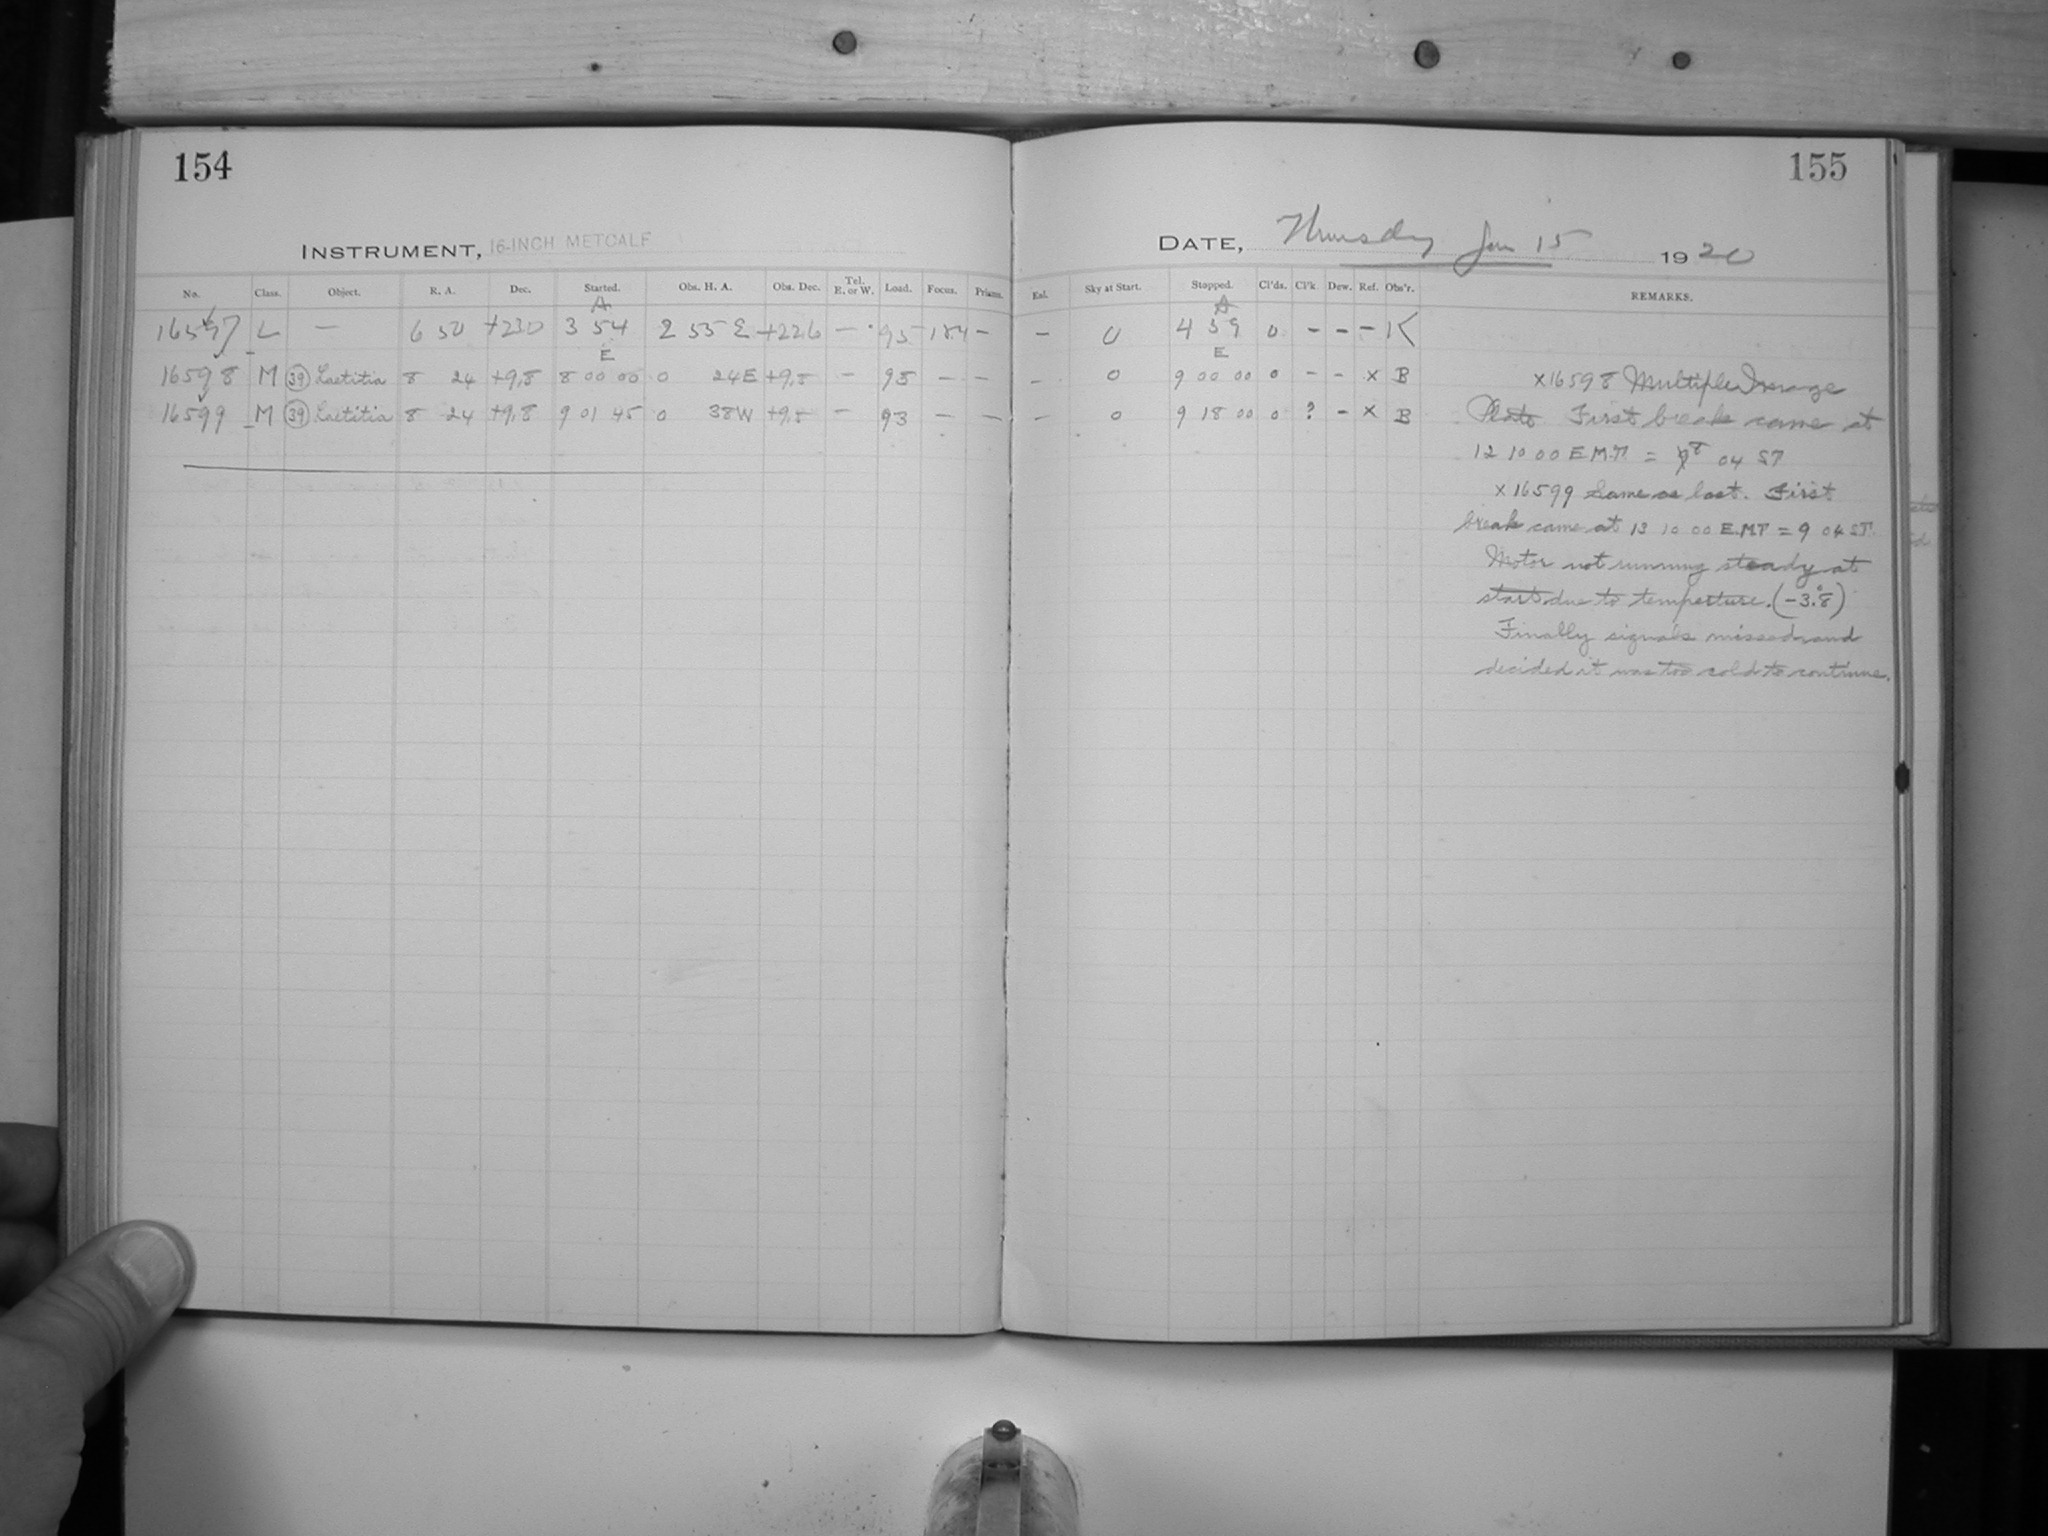 154
INSTRUMENT, 16-INCH METCALF
No. Class. Object. R. A. Dec. Started. Obs. H. A. Obs. Dec. Tel. E. or W. Load. Focus. Prisms.
A
16597 L — 6 50 +23.0 3 54 2 55 E +22.6 — 95 18.4 —
E
16598 M (39) Laetitia 8 24 +9.8 8 00 00 0 24E +9.8 — 95 — —
16599 M (39) Laetitia 8 24 +9.8 9 01 45 0 38W +9.8 — 93 — —
155
DATE, Thursday Jan 15 1920
Exl. Sky at Start. Stopped. Cl'ds. Cl'k Dew. Ref. Obs'r. REMARKS.
A
— 0 4 59 0 – – – K
E
— 0 9 00 00 0 – – x B
— 0 9 18 00 0 ? – x B
x16598 Multiple Image
Plate First break came at
12 10 00 E.M.T. = 8 04 ST
x16599 Same as last. First
break came at 13 10 00 E.M.T = 9 04 ST.
Motor not running steady at
start due to temperture. (-3.°8)
Finally signals missed and
decided it was too cold to continue.